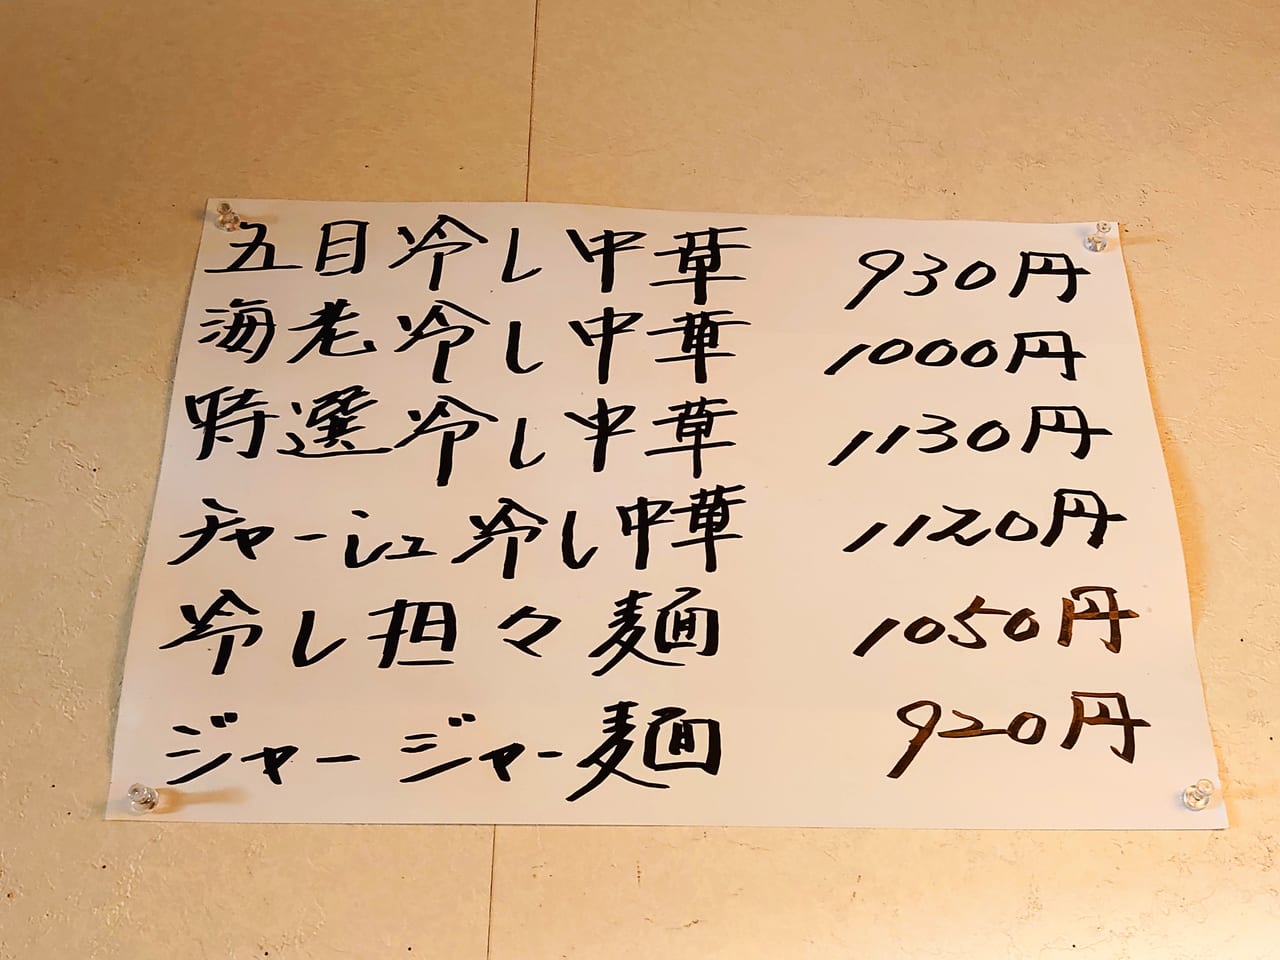 五目冷し中華 930円
海老冷し中華 1000円
特選冷し中華 1130円
チャーシュー冷し中華 1120円
冷し担々麺 1050円
ジャージャー麺 920円